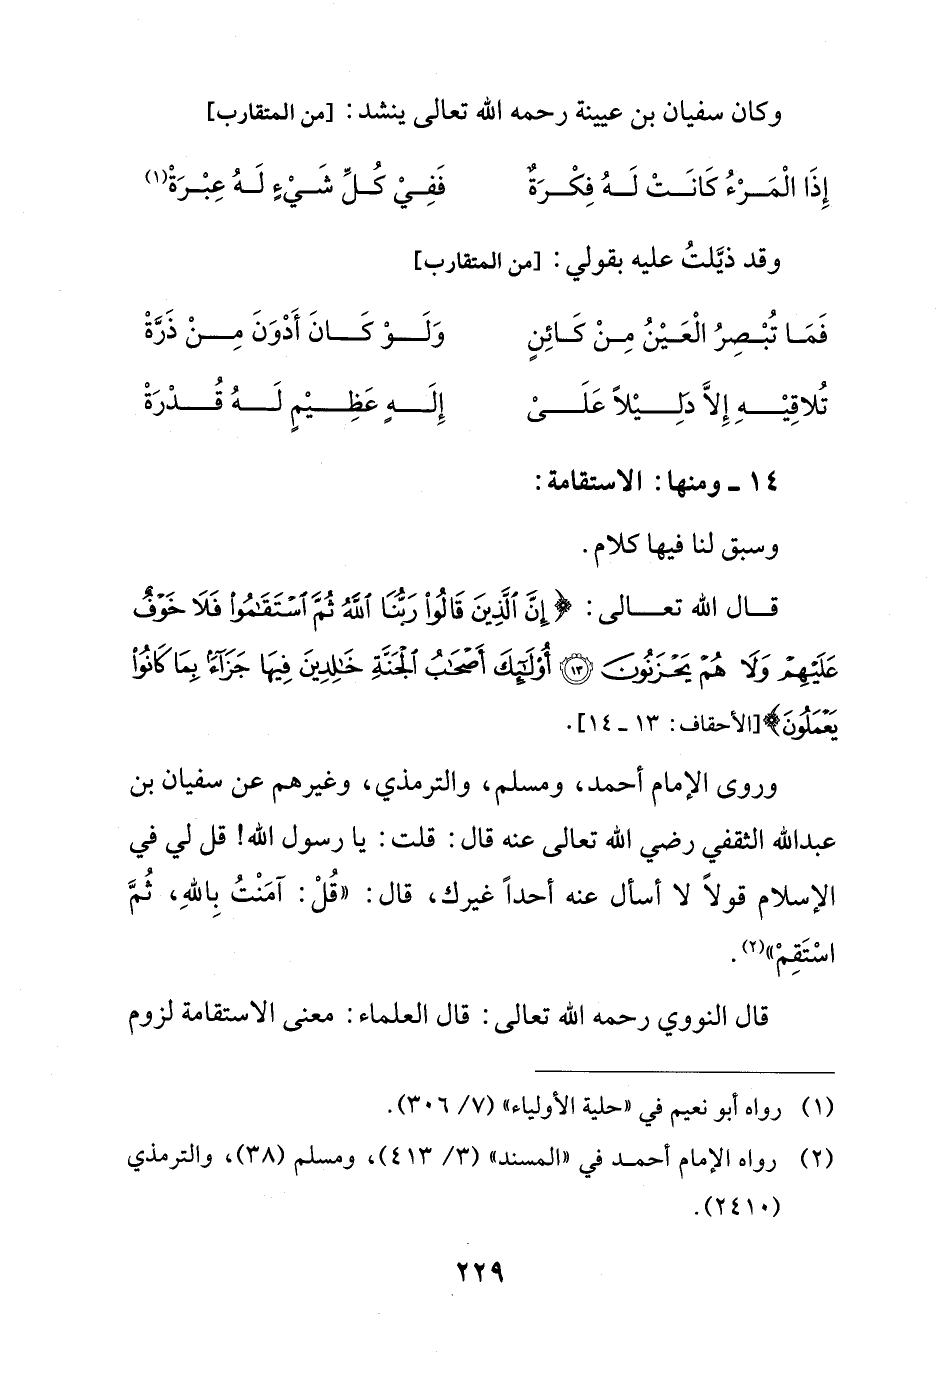 وكان سفيان بن عيينة رحمه الله تعالى ينشد: [من المتقارب]
إِذَا الْمَـــرْءُ كَانَـــتْ لَـــهُ فِكْـــرَةٌ فَفِـــيْ كُـــلِّ شَـــيْءٍ لَـــهُ عِبْـــرَةْ(١)
وقد ذيَّلتُ عليه بقولي: [من المتقارب]
فَمَـــا تُبْـــصِرُ الْعَـــيْنُ مِـــنْ كَـــائِنٍ وَلَـــوْ كَـــانَ أَدْوَنَ مِـــنْ ذَرَّةْ
تُلاقِيْـــهِ إِلاَّ دَلِـــيْلاً عَلَـــىْ إِلَـــهٍ عَظِـــيْمٍ لَـــهُ قُـــدْرَةْ
١٤ ـ ومنها: الاستقامة:
وسبق لنا فيها كلام.
قـــال الله تعـــالى: ﴿إِنَّ ٱلَّذِينَ قَالُوا۟ رَبُّنَا ٱللَّهُ ثُمَّ ٱسْتَقَـٰمُوا۟ فَلَا خَوْفٌ
عَلَيْهِمْ وَلَا هُمْ يَحْزَنُونَ ۝١٣ أُو۟لَـٰٓئِكَ أَصْحَـٰبُ ٱلْجَنَّةِ خَـٰلِدِينَ فِيهَا جَزَآءًۢ بِمَا كَانُوا۟
يَعْمَلُونَ﴾[الأحقاف: ١٣ ـ ١٤].
وروى الإمام أحمد، ومسلم، والترمذي، وغيرهم عن سفيان بن
عبدالله الثقفي رضي الله تعالى عنه قال: قلت: يا رسول الله! قل لي في
الإسلام قولاً لا أسأل عنه أحداً غيرك، قال: «قُلْ: آمَنْتُ بِاللهِ، ثُمَّ
اسْتَقِمْ»(٢).
قال النووي رحمه الله تعالى: قال العلماء: معنى الاستقامة لزوم
(١) رواه أبو نعيم في «حلية الأولياء» (٧/ ٣٠٦).
(٢) رواه الإمام أحمـد في «المسند» (٣/ ٤١٣)، ومسلم (٣٨)، والترمذي
(٢٤١٠).
٢٢٩